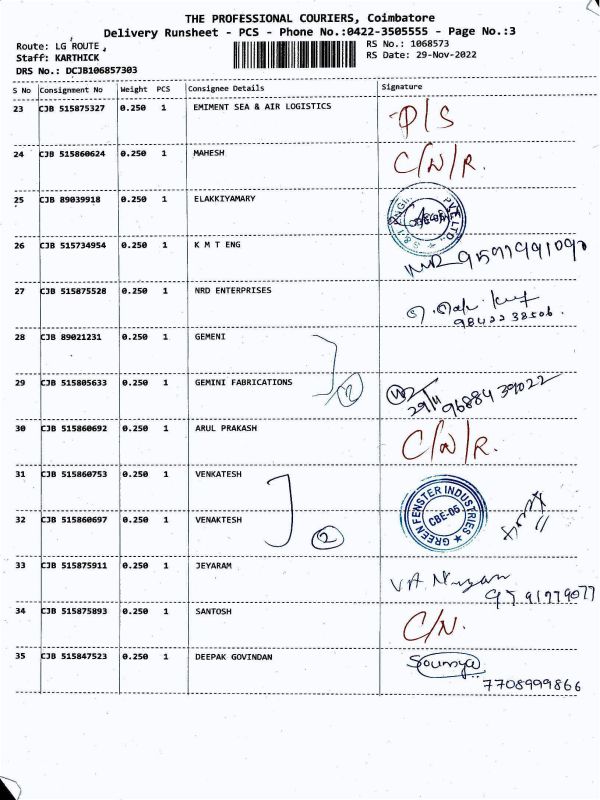 THE PROFESSIONAL COURIERS, Coimbatore
Delivery Runsheet - PCS - Phone No.:0422-3505555 - Page No.:3
Route: LG ROUTE , RS No.: 1068573
Staff: KARTHICK RS Date: 29-Nov-2022
DRS No.: DCJB106857303
S No Consignment No Weight PCS Consignee Details Signature
23 CJB 515875327 0.250 1 EMIMENT SEA & AIR LOGISTICS P/S
24 CJB 515860624 0.250 1 MAHESH C/N/R.
25 CJB 89039918 0.250 1 ELAKKIYAMARY PVT LTD.
26 CJB 515734954 0.250 1 K M T ENG
27 CJB 515875528 0.250 1 NRD ENTERPRISES
9842238506.
28 CJB 89021231 0.250 1 GEMENI
29 CJB 515805633 0.250 1 GEMINI FABRICATIONS 2 29/11 9688439022
30 CJB 515860692 0.250 1 ARUL PRAKASH C/N/R.
31 CJB 515860753 0.250 1 VENKATESH GREEN FENSTER INDUSTRIES
CBE-05
32 CJB 515860697 0.250 1 VENAKTESH 2
33 CJB 515875911 0.250 1 JEYARAM
34 CJB 515875893 0.250 1 SANTOSH C/N.
35 CJB 515847523 0.250 1 DEEPAK GOVINDAN Soumya
7708999866